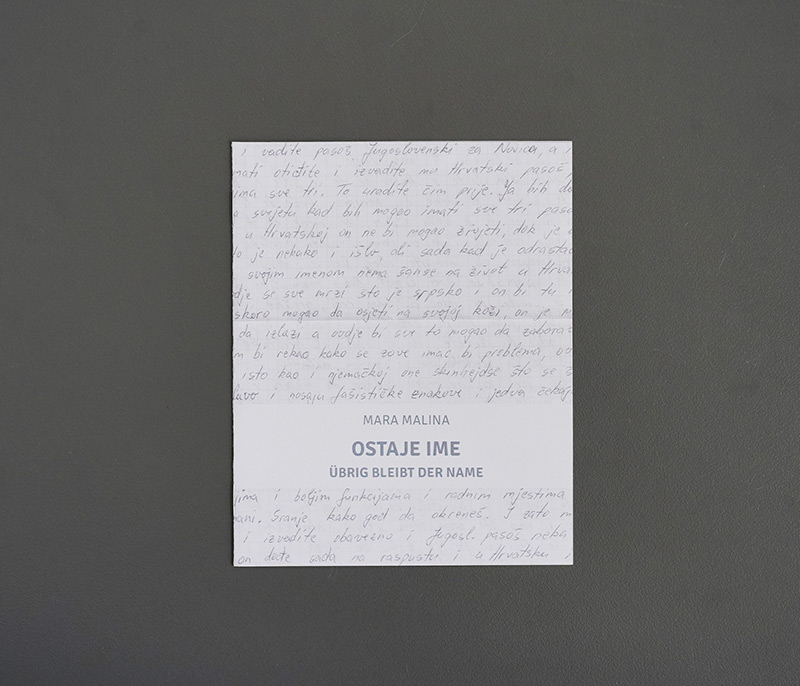 i vadite pasoš Jugoslovenski za Novica, a
mati otiđite i izvadite mu Hrvatski pasoš,
ima sve tri. To uradite čim prije. Ja bih da
o svijetu kad bih mogao imati sve tri paso
u Hrvatskoj on ne bi mogao živjeti, dok je
lo je nekako i išlo, ali sada kad je odrastao
svojim imenom nema šanse na život u Hrva
dje se sve mrzi što je srpsko i on bi tu
skoro mogao da osjeti na svojoj koži, on je
da izlazi a ovdje bi sve to mogao da zabora
m bi rekao kako se zove imao bi problema,
isto kao i njemačkoj one skinhejdse što se
lavo i nosaju fašističke znakove i jedva čekaj
MARA MALINA
OSTAJE IME
ÜBRIG BLEIBT DER NAME
jima i boljim funkcijama i radnim mjestima
ani. Sranje kako god da okreneš. I zato
i izvadite obavezno i Jugosl. pasoš neka
on dođe sada na raspustu i u Hrvatsku i